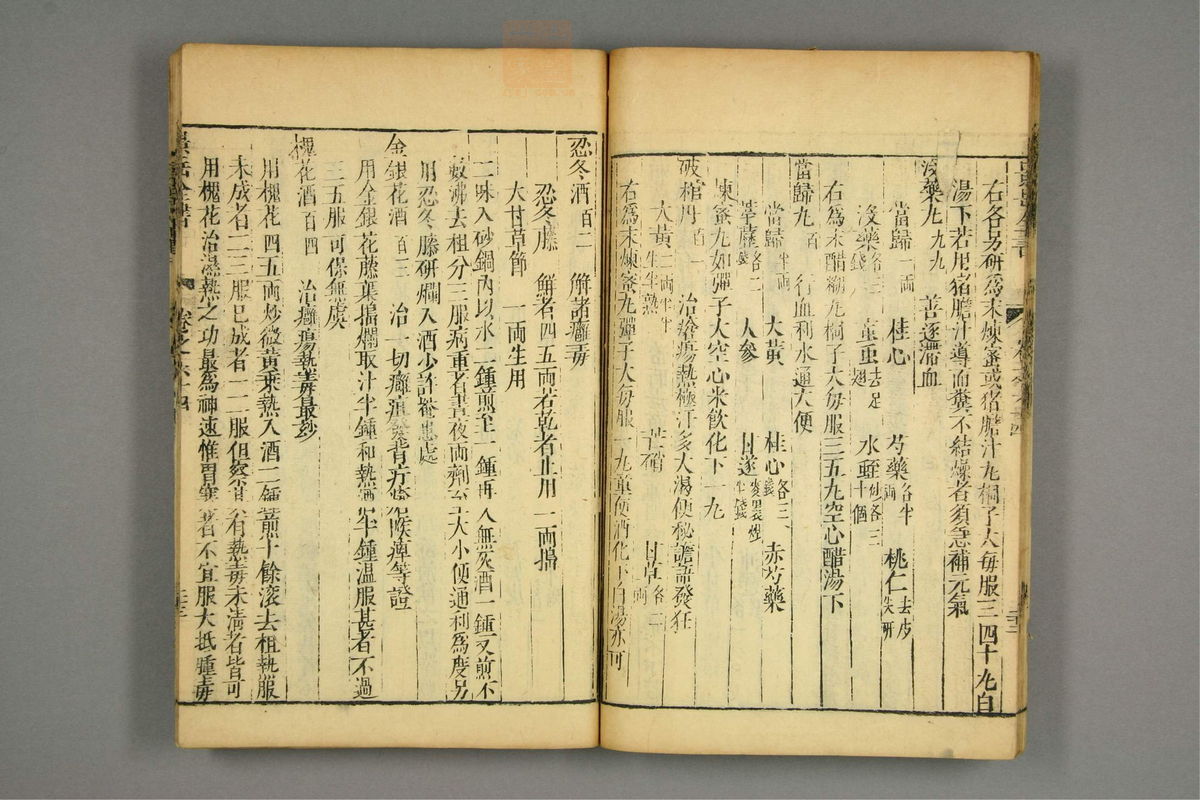 右各另研爲末煉蜜或猪膽汁丸桐子大每服三四十丸白
湯下若用猪膽汁導而糞不結燥者須急補元氣
没藥丸 九九 善逐滯血
當歸 一兩 桂心 芍藥 各半兩 桃仁 去皮尖研
没藥 各三錢 䖟虫 去足翅 水蛭 炒各三十個
右爲末醋糊丸桐子大每服三五丸空心醋湯下
當歸丸 百 行血利水通大便
當歸 半兩 大黃 桂心 各三錢 赤芍藥
葶藶 各二錢 人參 甘遂 麥裹煨半錢
煉蜜丸如彈子大空心米飲化下一丸
破棺丹 百一 治瘡瘍熱極汗多大渴便秘譫語發狂
大黃 二兩半半生半熟 芒硝 甘草 各二兩
右爲末煉蜜丸彈子大每服一丸童便酒化下白湯亦可
忍冬酒 百二 解諸癰毒
忍冬藤 鮮者四五兩若乾者止用一兩搗
大甘草節 一兩生用
二味入砂鍋內以水二鍾煎至一鍾再入無灰酒一鍾又煎不
數沸去柤分三服病重者晝夜兩劑至大小便通利爲度另
用忍冬藤研爛入酒少許罨患處
金銀花酒 百三 治一切癰疽發背疔瘡喉痺等證
用金銀花藤葉搗爛取汁半鍾和熱酒半鍾溫服甚者不過
三五服可保無虞
槐花酒 百四 治癰瘍熱毒最妙
用槐花四五兩炒微黃乘熱入酒二鍾煎十餘滚去柤熱服
未成者二三服已成者一二服但察其有熱毒未清者皆可
用槐花治濕熱之功最爲神速惟胃寒者不宜服大抵腫毒
景岳全書 卷之六十四